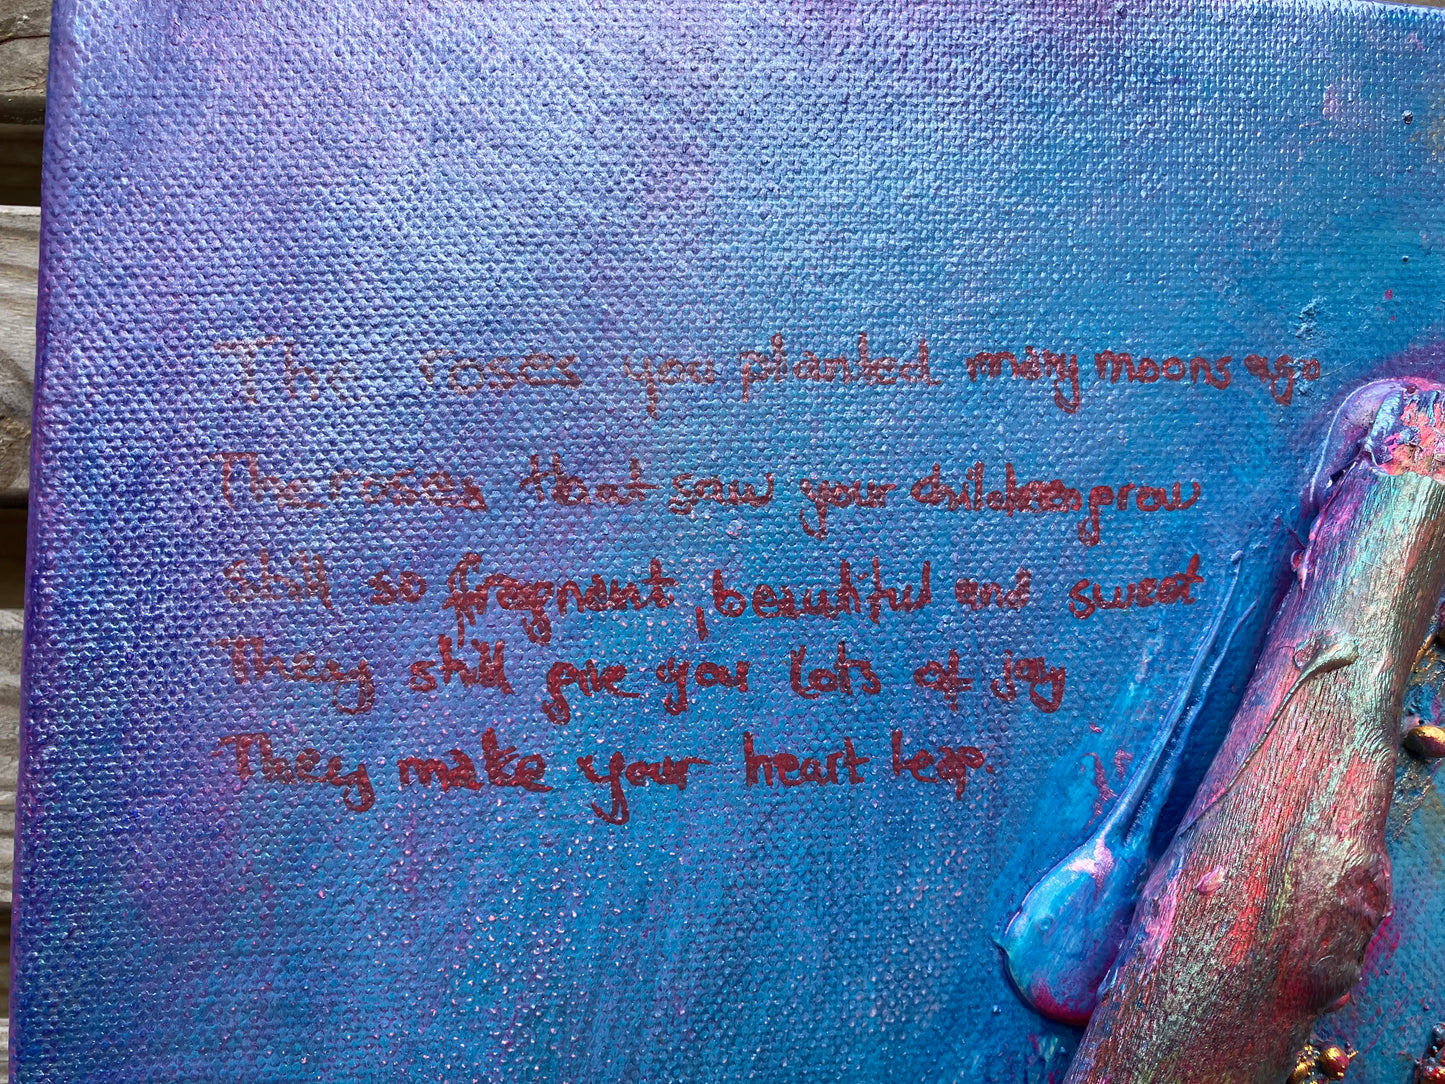 The roses you planted many moons ago
The roses that saw your children grow
Still so fragnant, beautiful and sweet
They still give you lots of joy
They make your heart leap.